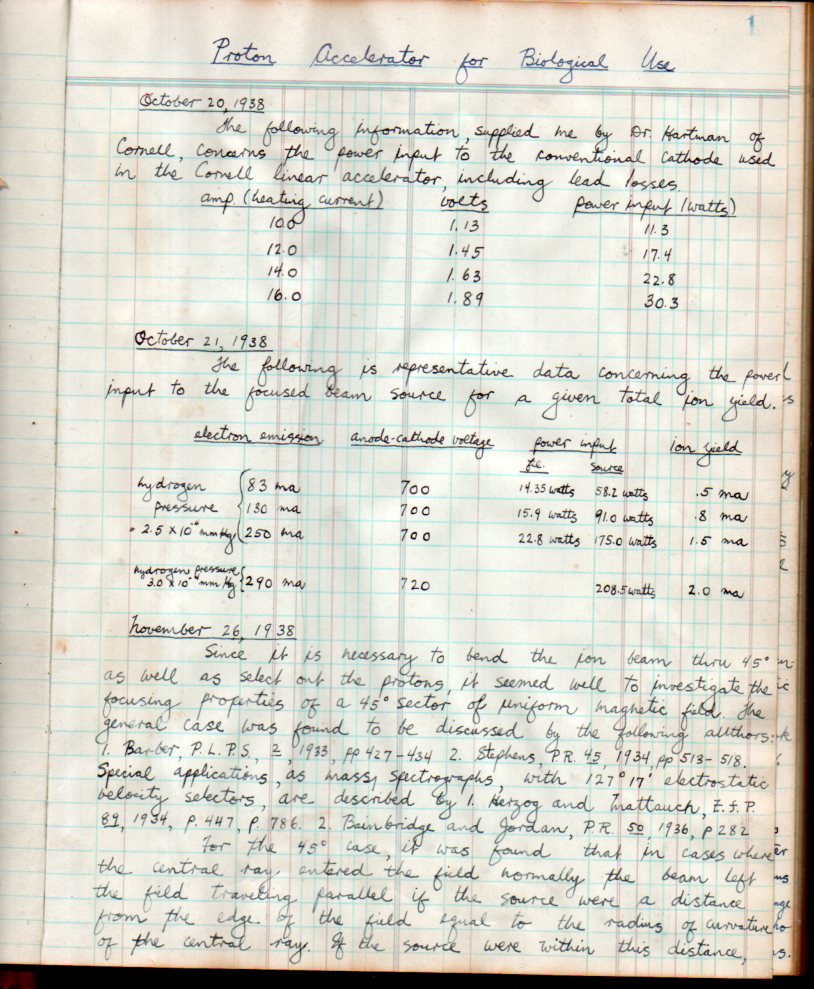 1
Proton Accelerator for Biological Use
October 20, 1938
The following information, supplied me by Dr. Hartman of
Cornell, concerns the power input to the conventional cathode used
in the Cornell linear accelerator, including lead losses.
amp. (heating current) volts power input (watts)
10.0 1.13 11.3
12.0 1.45 17.4
14.0 1.63 22.8
16.0 1.89 30.3
October 21, 1938
The following is representative data concerning the power
input to the focused beam source for a given total ion yield.
electron emission anode-cathode voltage power input ion yield
fil. source
hydrogen 83 ma 700 14.35 watts 58.2 watts .5 ma
pressure 130 ma 700 15.9 watts 91.0 watts .8 ma
2.5 x 10 mm Hg 250 ma 700 22.8 watts 175.0 watts 1.5 ma
hydrogen pressure
3.0 x 10 mm Hg 290 ma 720 208.5 watts 2.0 ma
November 26, 1938
Since it is necessary to bend the ion beam thru 45°
as well as select out the protons, it seemed well to investigate the
focusing properties of a 45° sector of uniform magnetic field. The
general case was found to be discussed by the following authors:
1. Barber, P.L.P.S., 2, 1933, pp 427-434 2. Stephens, P.R. 45, 1934, pp 513-518.
Special applications, as mass spectrographs, with 127° 17' electrostatic
velocity selectors, are described by 1. Herzog and Mattauch, Z.f.P.
89, 1934, p. 447, p. 786. 2. Bainbridge and Jordan, P.R. 50, 1936, p 282
For the 45° case, it was found that in cases where
the central ray entered the field normally the beam left
the field traveling parallel if the source were a distance
from the edge of the field equal to the radius of curvature
of the central ray. If the source were within this distance,